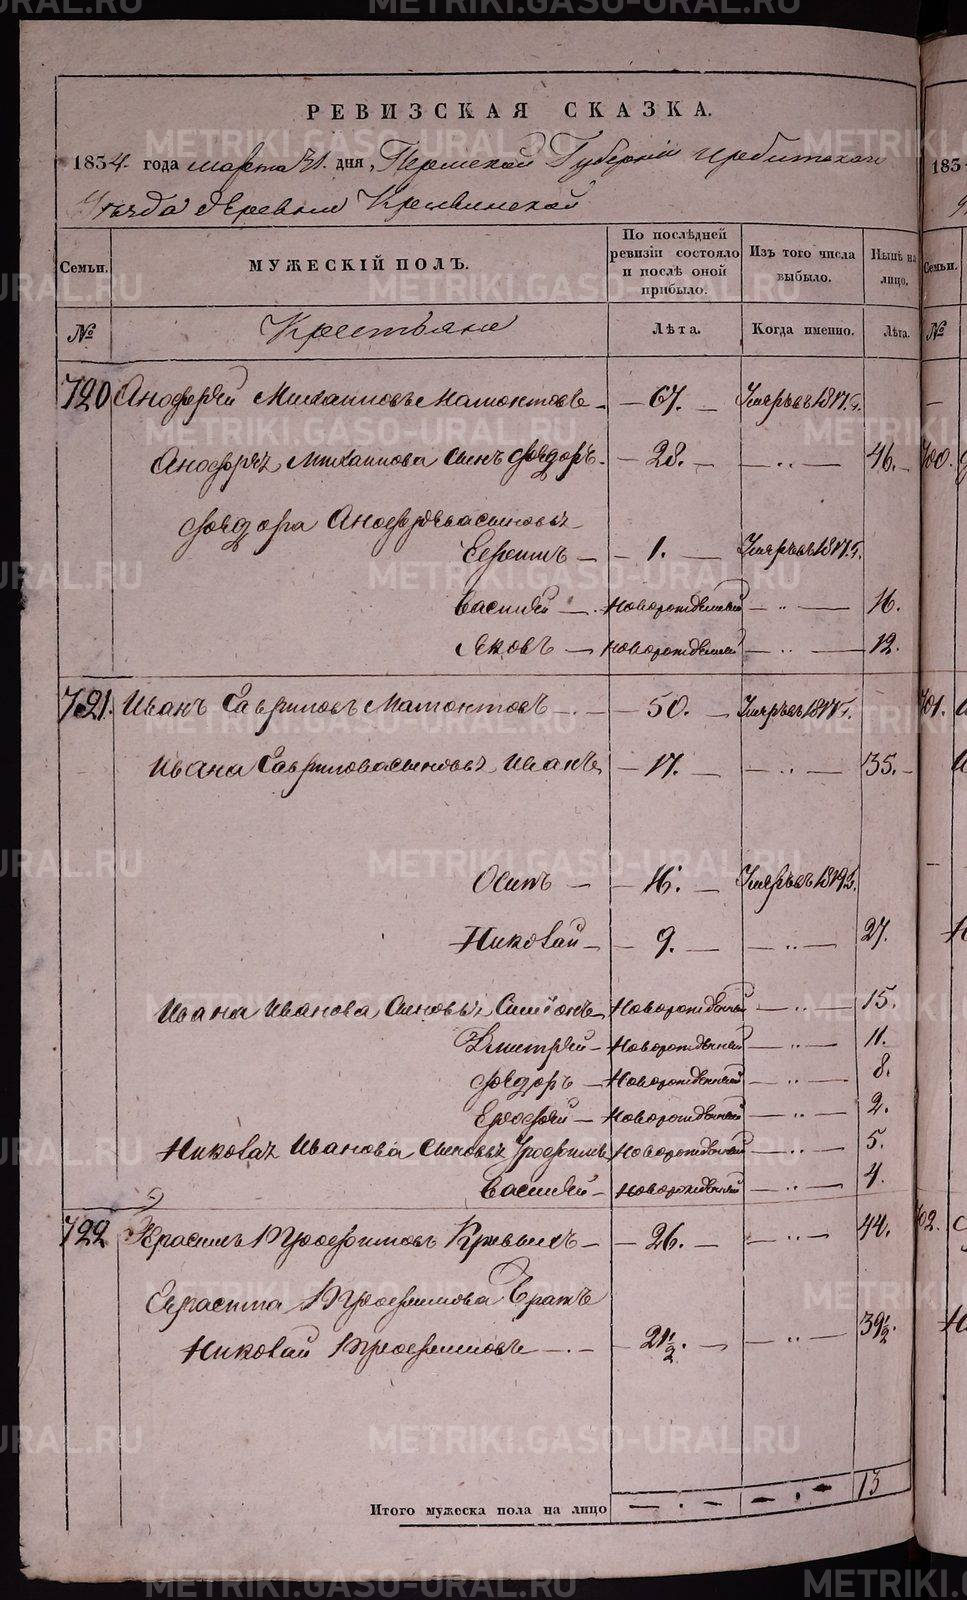 РЕВИЗСКАЯ СКАЗКА.
1834 года марта 31. дня, Пермской Губернии Ирбитскаго
Уѣзда деревни
Семьи. МУЖЕСКІЙ ПОЛЪ. По послѣдней ревизіи состояло и послѣ оной прибыло. Изъ того числа выбыло. Нынѣ на лицо.
№ Крестьяне Лѣта. Когда именно. Лѣта.
720 Анофрей Михаиловъ Мамонтовъ — 67. — Умеръ въ 181
Анофрея Михаилова сынъ Федоръ — 28. — — „ — 46.
Федора Анофріева сыновья
— 1. — Умеръ въ 181
Василей — новорожденный — „ — 16.
Яковъ — новорожденный — „ — 12.
721. Иванъ Гавриловъ Мамонтовъ — 50. — Умеръ въ 181
Ивана Гаврилова сыновья Иванъ — 17. — — „ — 35.
Осипъ — 16. — Умеръ въ 18
Николай — 9. — — „ — 27.
Ивана Иванова сыновья Симіонъ новорожденный — „ — 15.
Дмитрей — новорожденный — „ — 11.
Федоръ — новорожденный — „ — 8.
Ерофей — новорожденный — „ — 2.
Николая Иванова сыновья Трофимъ новорожденный — „ — 5.
Василей — новорожденный — „ — 4.
722 Герасимъ — 26. — — „ — 44.
Герасима братъ
Николай — 21½ — — „ — 39½.
Итого мужеска пола на лицо — . — — . — 13
183
№
METRIKI.GASO-URAL.RU